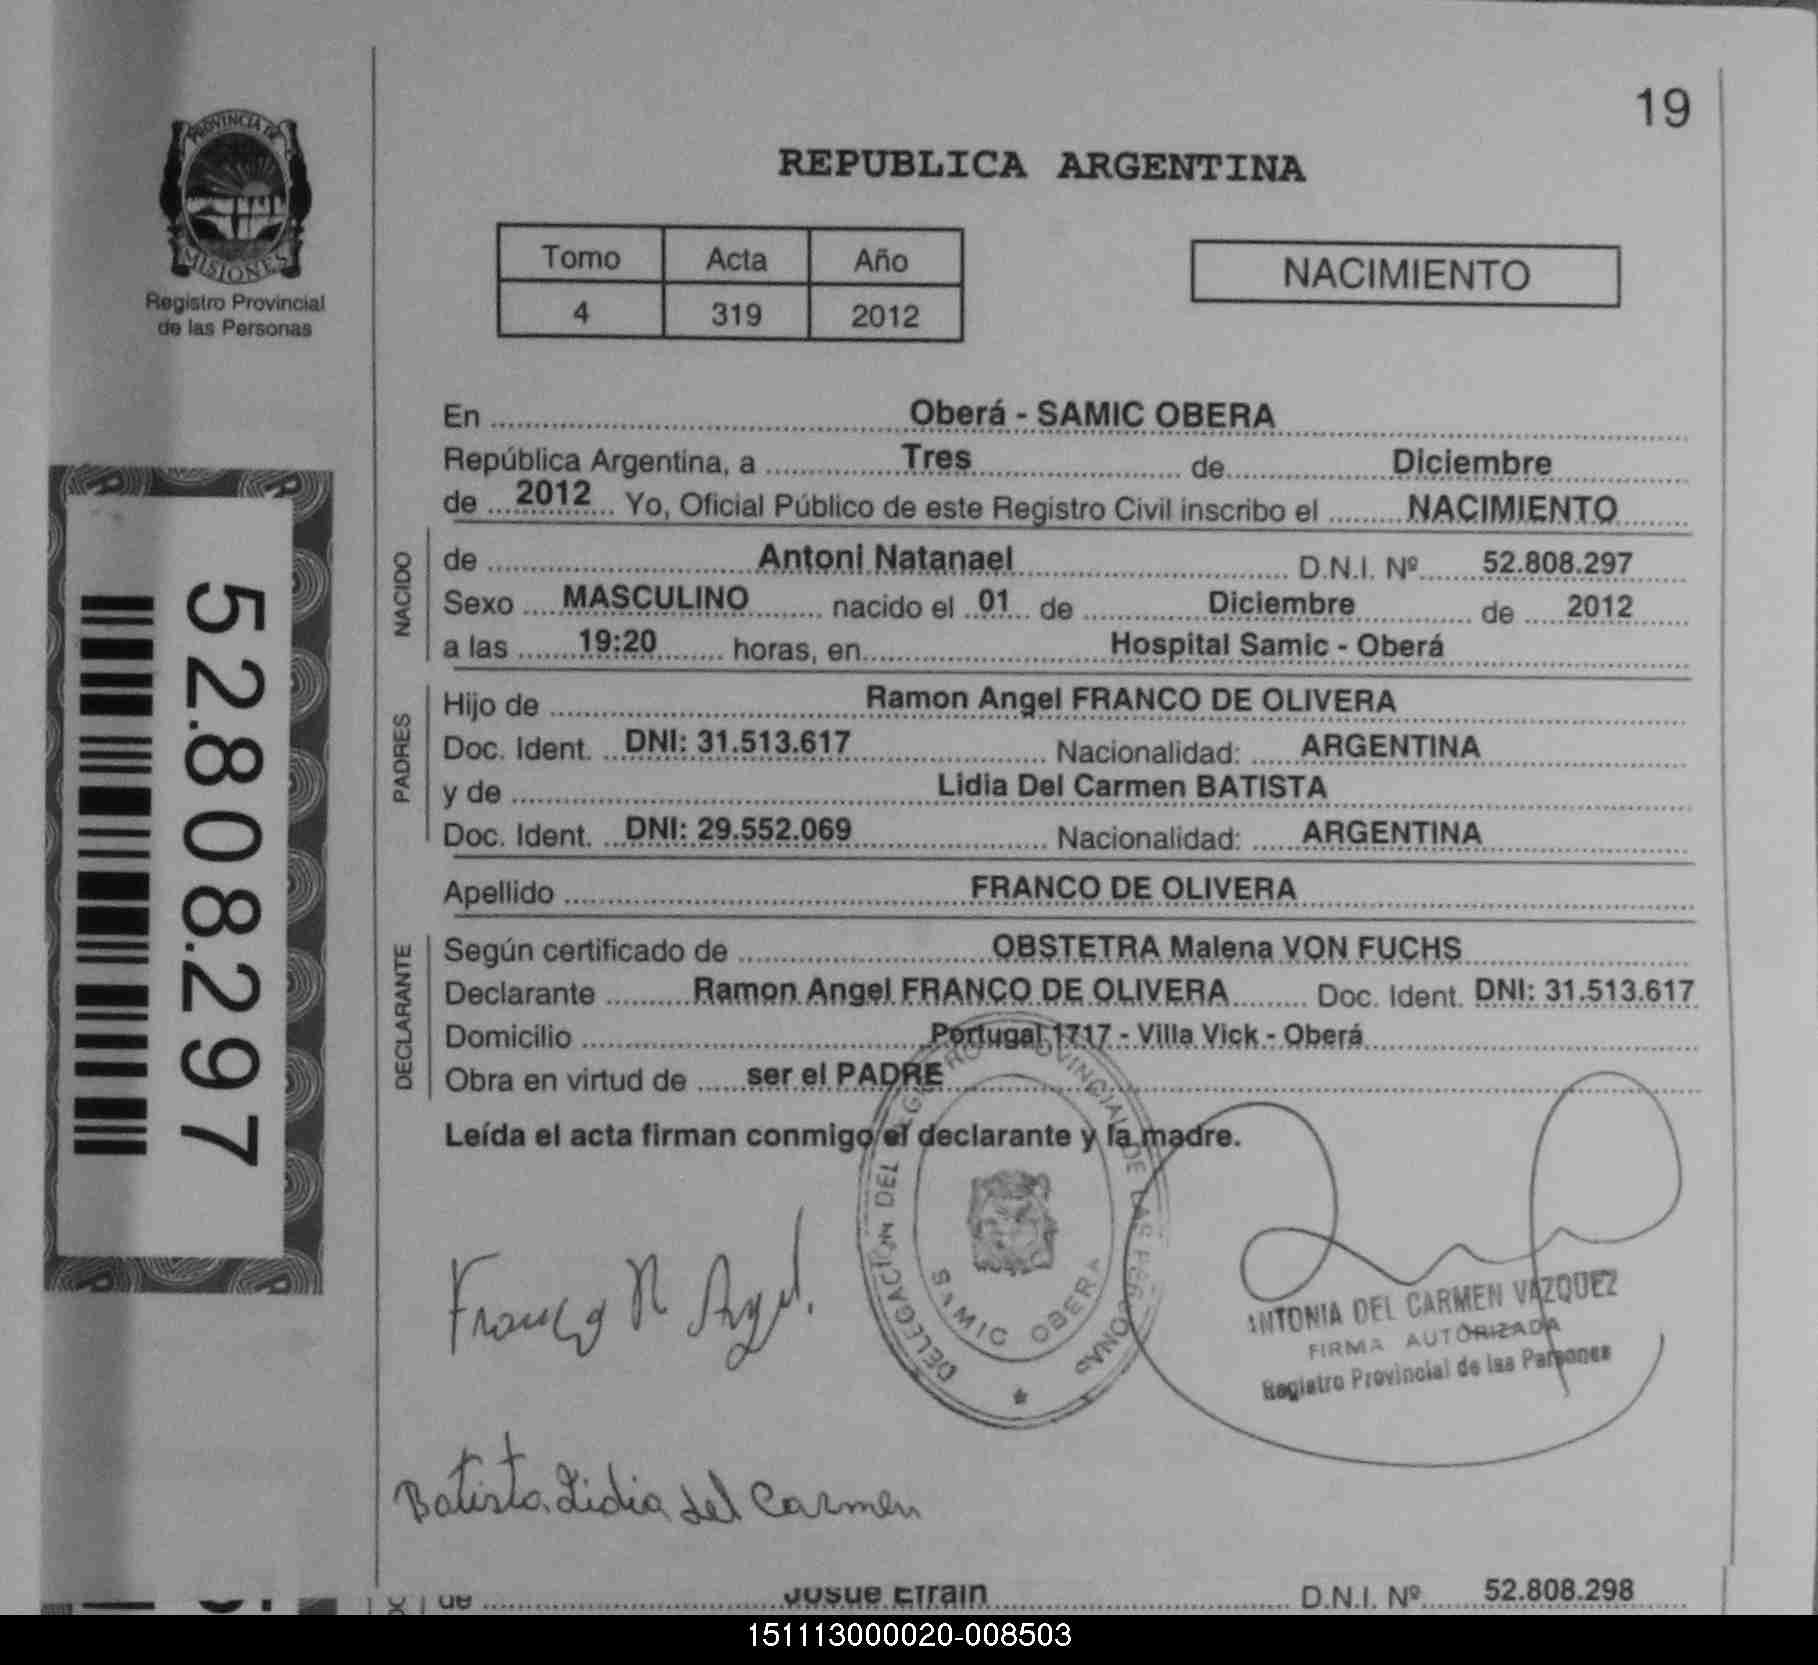 19
PROVINCIA DE
MISIONES
Registro Provincial
de las Personas
REPUBLICA ARGENTINA
Tomo Acta Año
4 319 2012
NACIMIENTO
52.808.297
En Oberá - SAMIC OBERA
República Argentina, a Tres de Diciembre
de 2012 Yo, Oficial Público de este Registro Civil inscribo el NACIMIENTO
NACIDO
de Antoni Natanael D.N.I. Nº 52.808.297
Sexo MASCULINO nacido el 01 de Diciembre de 2012
a las 19:20 horas, en Hospital Samic - Oberá
PADRES
Hijo de Ramon Angel FRANCO DE OLIVERA
Doc. Ident. DNI: 31.513.617 Nacionalidad: ARGENTINA
y de Lidia Del Carmen BATISTA
Doc. Ident. DNI: 29.552.069 Nacionalidad: ARGENTINA
Apellido FRANCO DE OLIVERA
DECLARANTE
Según certificado de OBSTETRA Malena VON FUCHS
Declarante Ramon Angel FRANCO DE OLIVERA Doc. Ident. DNI: 31.513.617
Domicilio Portugal 1717 - Villa Vick - Oberá
Obra en virtud de ser el PADRE
Leída el acta firman conmigo el declarante y la madre.
DELEGACION DEL REGISTRO PROVINCIAL DE LAS PERSONAS
SAMIC OBERA
Franco R Angel.
ANTONIA DEL CARMEN VAZQUEZ
FIRMA AUTORIZADA
Registro Provincial de las Personas
Batista Lidia del Carmen
de Josue Efrain D.N.I. Nº 52.808.298
151113000020-008503